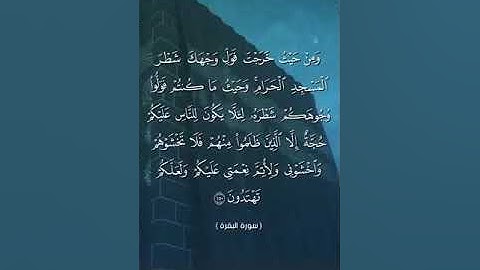 وَمِنْ حَيْثُ خَرَجْتَ فَوَلِّ وَجْهَكَ شَطْرَ
ٱلْمَسْجِدِ ٱلْحَرَامِ وَحَيْثُ مَا كُنتُمْ فَوَلُّوا۟
وُجُوهَكُمْ شَطْرَهُۥ لِئَلَّا يَكُونَ لِلنَّاسِ عَلَيْكُمْ
حُجَّةٌ إِلَّا ٱلَّذِينَ ظَلَمُوا۟ مِنْهُمْ فَلَا تَخْشَوْهُمْ
وَٱخْشَوْنِى وَلِأُتِمَّ نِعْمَتِى عَلَيْكُمْ وَلَعَلَّكُمْ
تَهْتَدُونَ ١٥٠
( سورة البقرة )